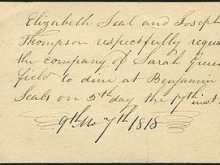 Elizabeth Seal and Joseph
Thompson respectfully request
the company of Sarah Green
field to dine at Benjamin
Seals on 5th day the 17th inst.
9th Mo 7th 1818